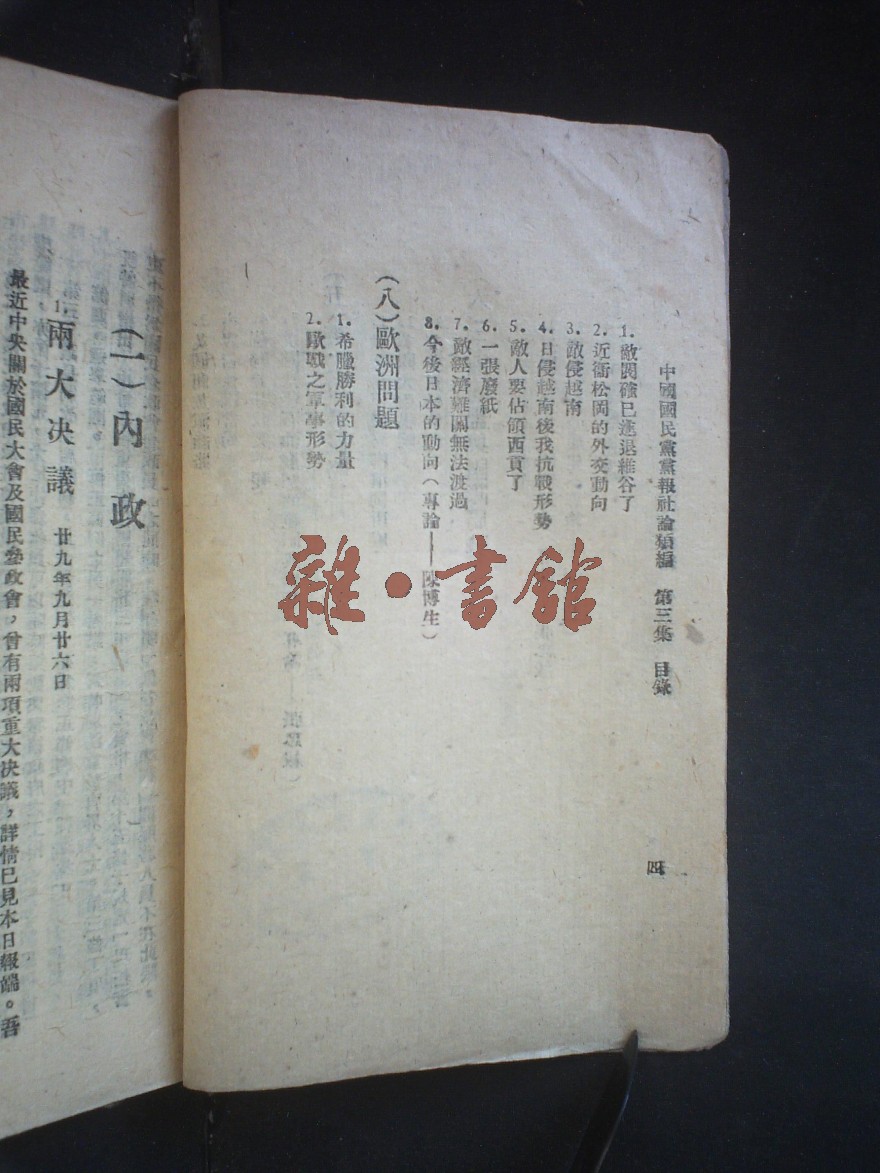 中國國民黨黨報社論類編　第三集　目錄
四
1. 敵閥確已進退維谷了
2. 近衞松岡的外交動向
3. 敵侵越南
4. 日侵越南後我抗戰形勢
5. 敵人要佔領西貢了
6. 一張廢紙
7. 敵經濟難關無法渡過
8. 今後日本的動向（專論——陳博生）
（八）歐洲問題
1. 希臘勝利的力量
2. 歐戰之軍事形勢
（一）內政
1. 兩大決議　廿九年九月廿六日
最近中央關於國民大會及國民參政會，曾有兩項重大決議，詳情已見本日報端。吾
雜·書館